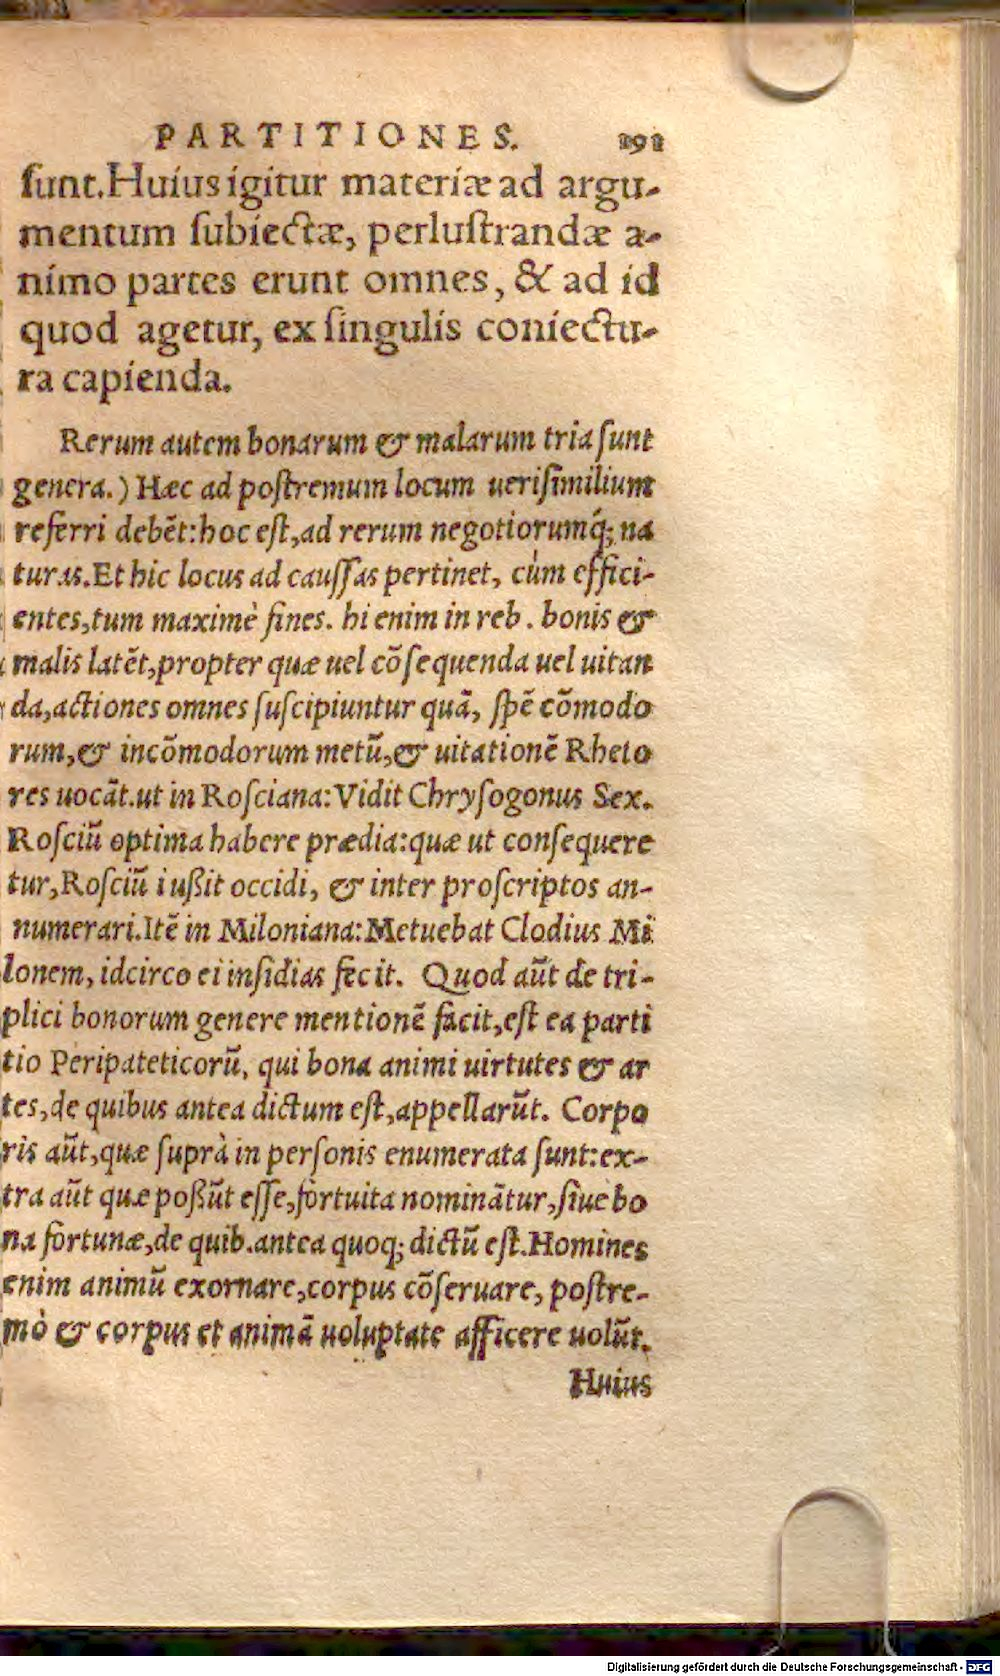 PARTITIONES. 191
ſunt. Huius igitur materiæ ad argu-
mentum ſubiectæ, perluſtrandæ a-
nimo partes erunt omnes, & ad id
quod agetur, ex ſingulis coniectu-
ra capienda.
Rerum autem bonarum & malarum tria ſunt
genera.) Hæc ad poſtremum locum ueriſimilium
referri debēt: hoc eſt, ad rerum negotiorumq́; na
turas. Et hic locus ad cauſſas pertinet, cùm effici-
entes, tum maximè fines. hi enim in reb. bonis &
malis latēt, propter quæ uel cōſequenda uel uitan
da, actiones omnes ſuſcipiuntur quā, ſpē cōmodo
rum, & incōmodorum metū, & uitationē Rheto
res uocāt. ut in Roſciana: Vidit Chryſogonus Sex.
Roſciū optima habere prædia: quæ ut conſequere
tur, Roſciū iußit occidi, & inter proſcriptos an-
numerari. Itē in Miloniana: Metuebat Clodius Mi
lonem, idcirco ei inſidias fecit. Quod aūt de tri-
plici bonorum genere mentionē facit, eſt ea parti
tio Peripateticorū, qui bona animi uirtutes & ar
tes, de quibus antea dictum eſt, appellarūt. Corpo
ris aūt, quæ ſuprà in perſonis enumerata ſunt: ex-
tra aūt quæ poßūt eſſe, fortuita nominātur, ſiue bo
na fortunæ, de quib. antea quoq; dictū eſt. Homines
enim animū exornare, corpus cōſeruare, poſtre-
mò & corpus et animā uoluptate afficere uolūt.
Huius
Digitalisierung gefördert durch die Deutsche Forschungsgemeinschaft - DFG